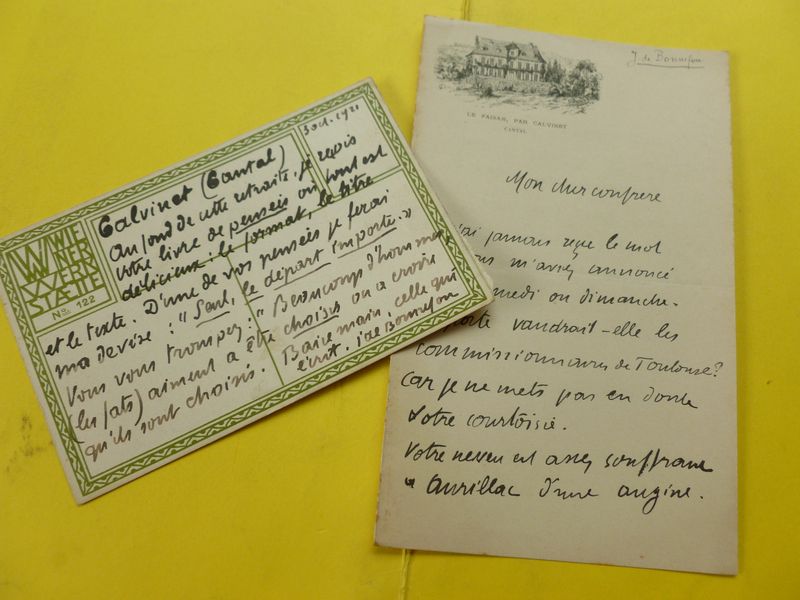 WIENER
WERK
STÆTTE
No. 122
3 oct. 1921
Calvinet (Cantal)
au fond de cette retraite, je reçois
votre livre de pensées où tout est
délicieux : le format, le titre
et le texte. D'une de vos pensées je ferai
ma devise : "Seul, le départ importe."
Vous vous trompez : "Beaucoup d'hommes
(les fats) aiment à être choisis ou à croire
qu'ils sont choisis. Baise main, celle qui
écrit. J de Bonnefon
J. de Bonnefon
LE FAISAN, PAR CALVINET
CANTAL
Mon cher confrère
jamais reçu le mot
m'avez annoncé
medi ou dimanche.
vaudrait-elle les
commissionnaires de Toulouse?
Car je ne mets pas en doute
votre courtoisie.
Votre neveu est assez souffrant
à Aurillac d'une angine.